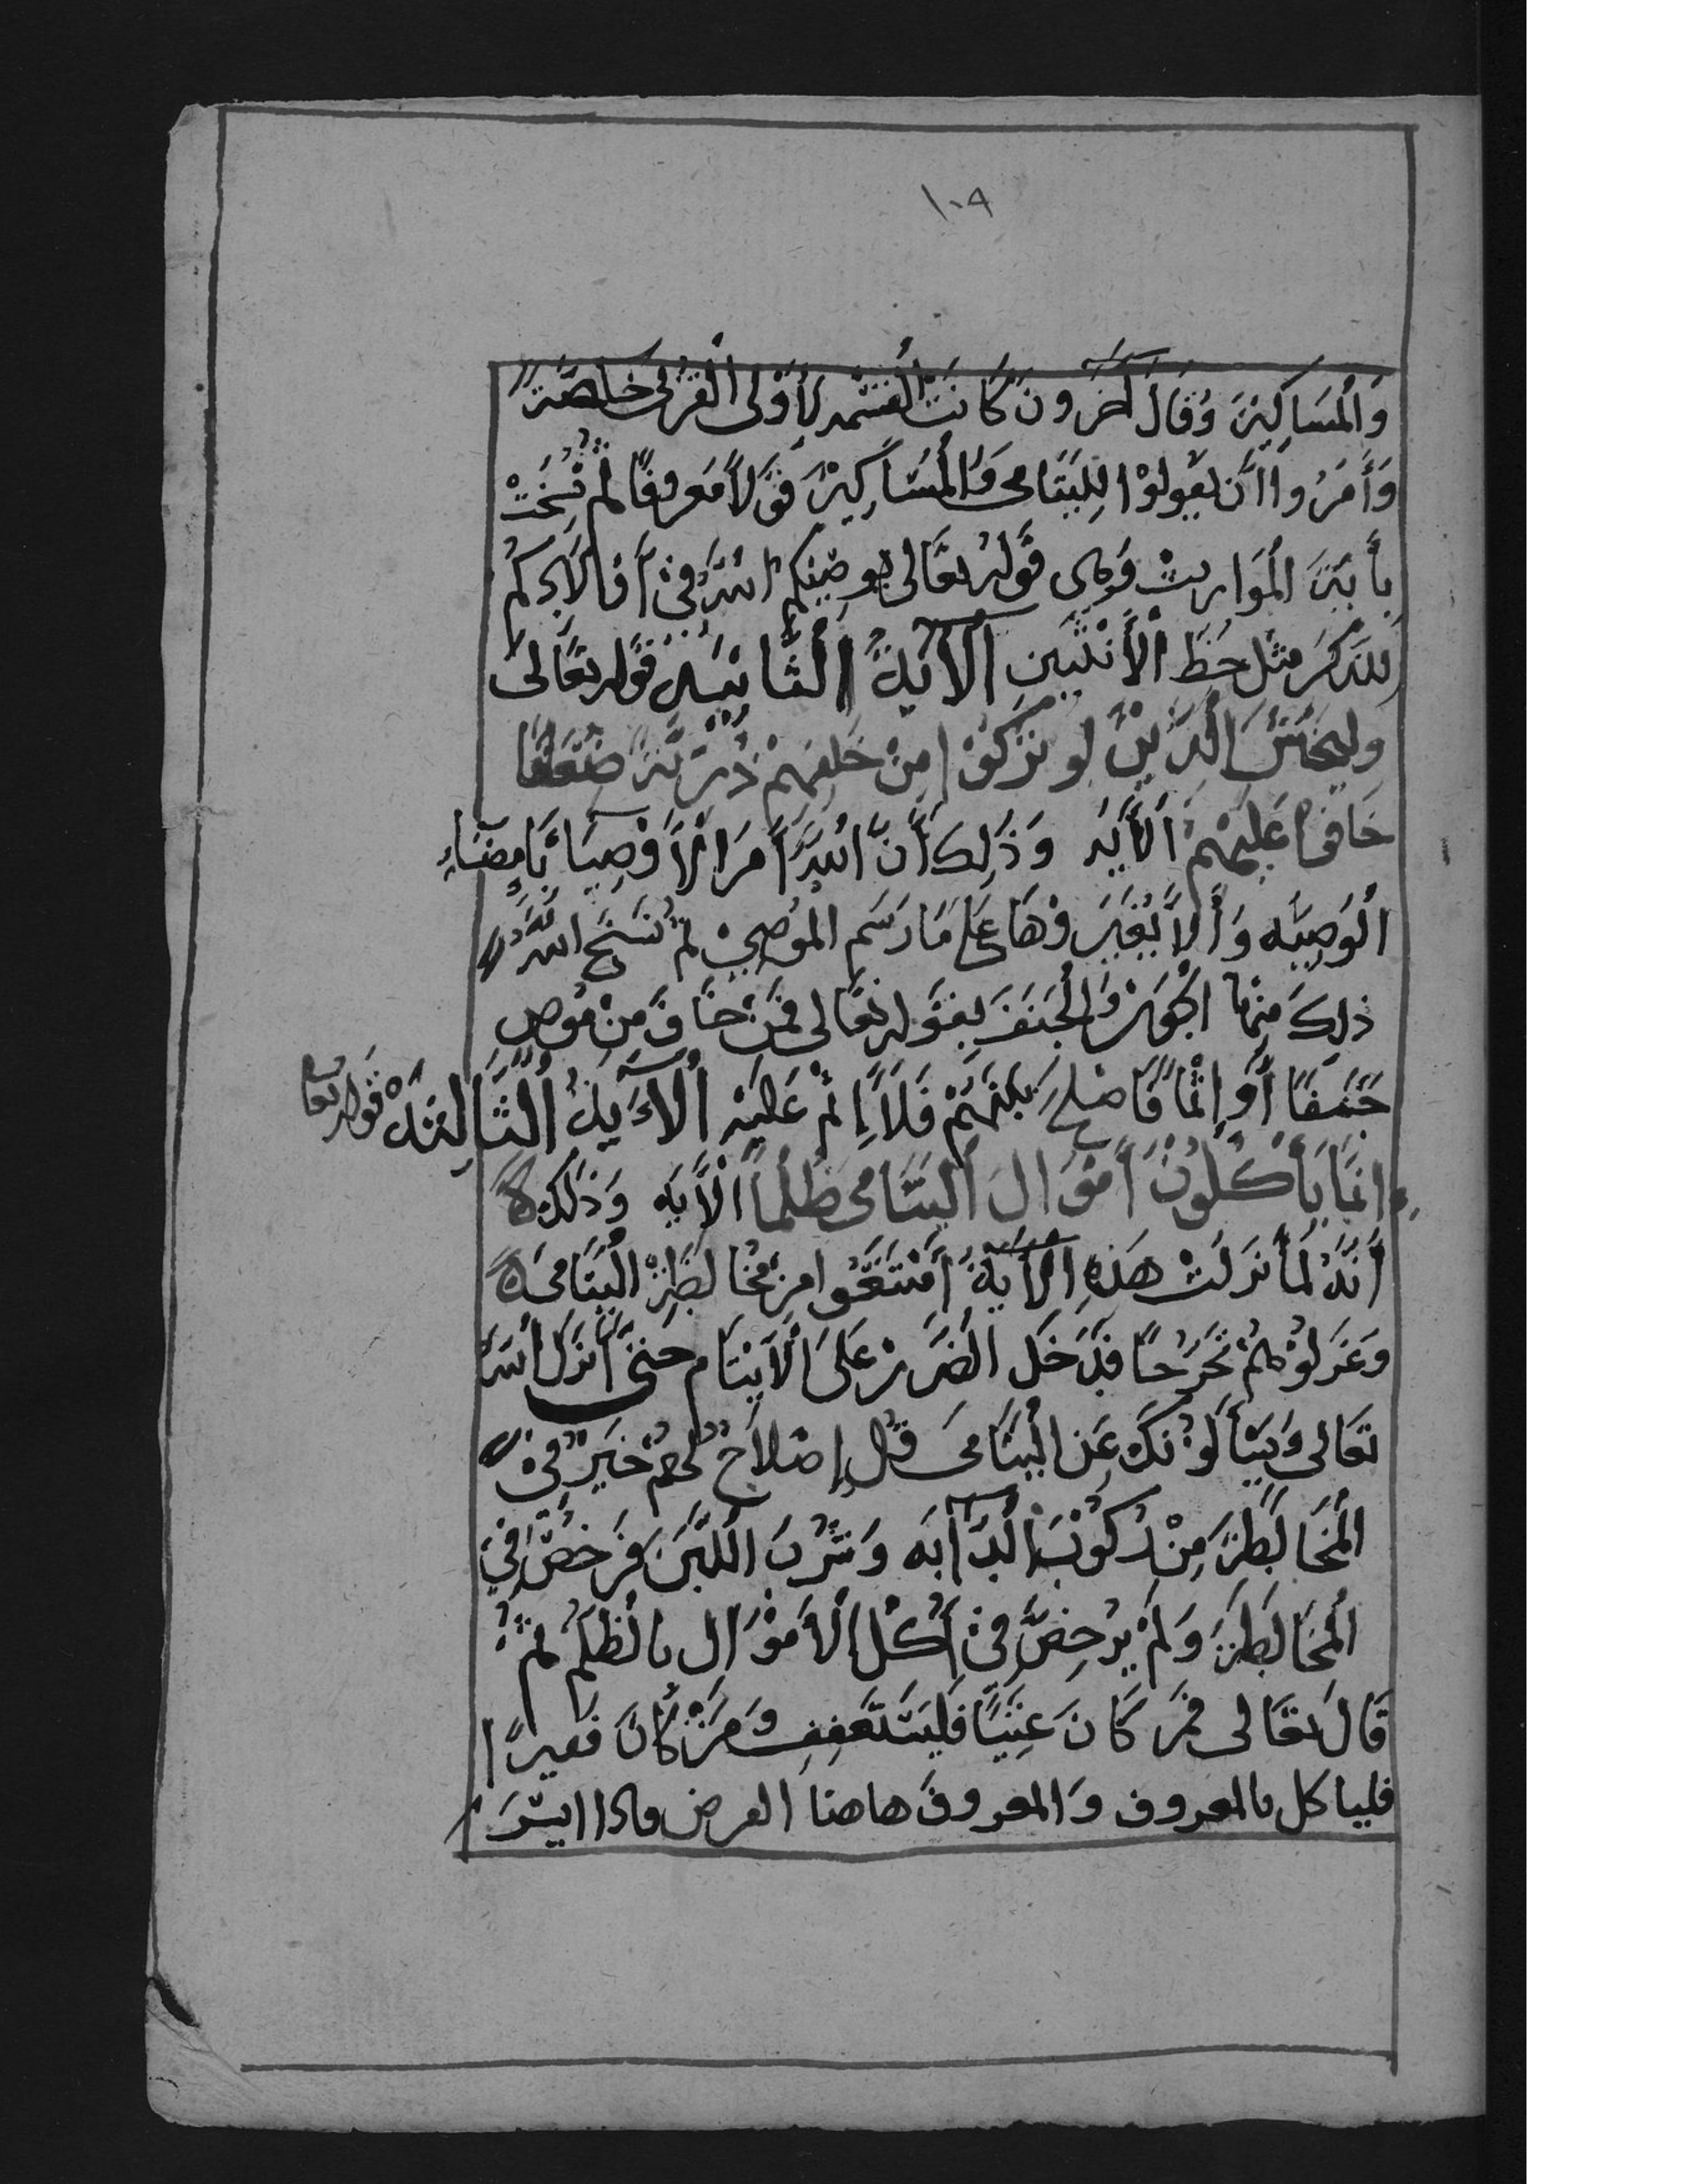 ١٠٩
وَالْمَسَاكِينَ وَقَالَ آخَرُونَ كَانَتْ الْقِسْمَه لِأُوْلى الْقُرْبَى خَاصَّةً
وَأُمِرُوا أَن يقولوْا لِليَتَامى وَالْمَسَاكِيْنَ قَوْلاً مَعروفًا ثُمَّ نُسِخَتْ
بِأَيَةِ الْمَوَاريثِ وَهى قَوْلُه تعَالى يوصِيْكم اللهُ فِىْ أَوْلَادِكُم
لِلذَكَرَ مثل حَظِ الْأُنْثَيَينِ الْآيَةُ الثَّانِيَةُ قَولُه تعَالى
وليخْشَ الَّذِيْنَ لو تَرَكُوْا مِنْ خَلفِهِمْ ذُرِيَّةً ضِعَافًا
خَافوا عَلَيهِمْ الْأَيَه وَذَلِكَ أَنَّ اللهَ أَمَرَ الْأَوْصِيَاءَ بِامضَاءِ
الْوَصِيَّه وَأَلاَّ يُغَيِّرَوْهَا عَلى مَا رَسَم المُوْصِيْ ثم نَسَخَ اللهُ
ذلِكَ مِنهَا الجَوْرْ وَالْجَنَفَ بِقَوْله تعَالى فَمَنْ خَافَ مِنْ مُوصٍ
جَنَفًا أَوْ إِثْمًا فَأَصْلَحَ بَيْنَهُمْ فَلَا إِثْمَ عَلَيْهِ الْآيَةُ الثَّالِثَةُ قَوله تعَا
اِنمَا يَأْكُلُوْنَ أَمْوَالَ الْيَتَامى ظُلْمًا الْأَيَه وَذَلكَ
أَنَّهُ لَمَّا نزلَتْ هَذِهِ الْأَيَةُ امْتَنَعُوا مِنْ مُخَالطَةِ الْيَتَامى
وَعَزلُوْهُمْ تَحَرُّجًا فَدَخَل الضَرَرْ عَلَى الْأَيْتَام حتى أَنزَلَ اللهُ
تعَالى وَيَسْأَلُوْنَكَ عَنِ الْيَتَامَى قُلْ إِصْلاحٌ لَهُمْ خَيْرٌ فِىْ
الْمُخَالَطَةِ مِنْ رُكُوْبِ الدَّآبَه وَشُرْبَ اللَّبَنِ فَرَخصَ فِي
الْمخَالَطَةِ وَلَمْ يُرَخِصَ فِىْ أَكْل الْأَمْوَالِ بالظلم ثُمَّ
قَالَ تعَالى فَمَن كَانَ غَنِيًا فَليَسْتَعْفِفِ وَمَنْ كَانَ فقيرًا
فلياكل بالمعروف وَالمعروفَ هاهنا القرض فاذا ايسَرَ